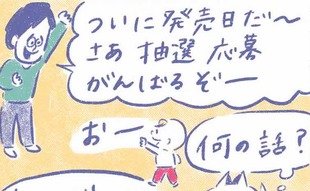 ついに発売日だ〜
さあ 抽選 応募
がんばるぞー
おー
何の話?